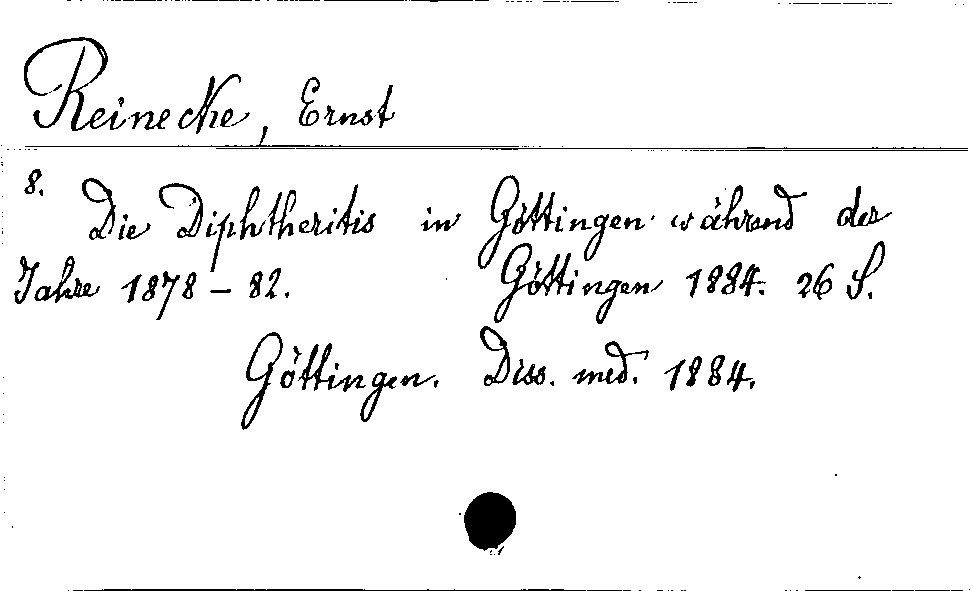 Reinecke, Ernst
8. Die Diphtheritis in Göttingen während der
Jahre 1878 – 82. Göttingen 1884. 26 S.
Göttingen. Diss. med. 1884.